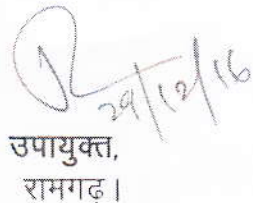 29/12/16
उपायुक्त,
रामगढ़।